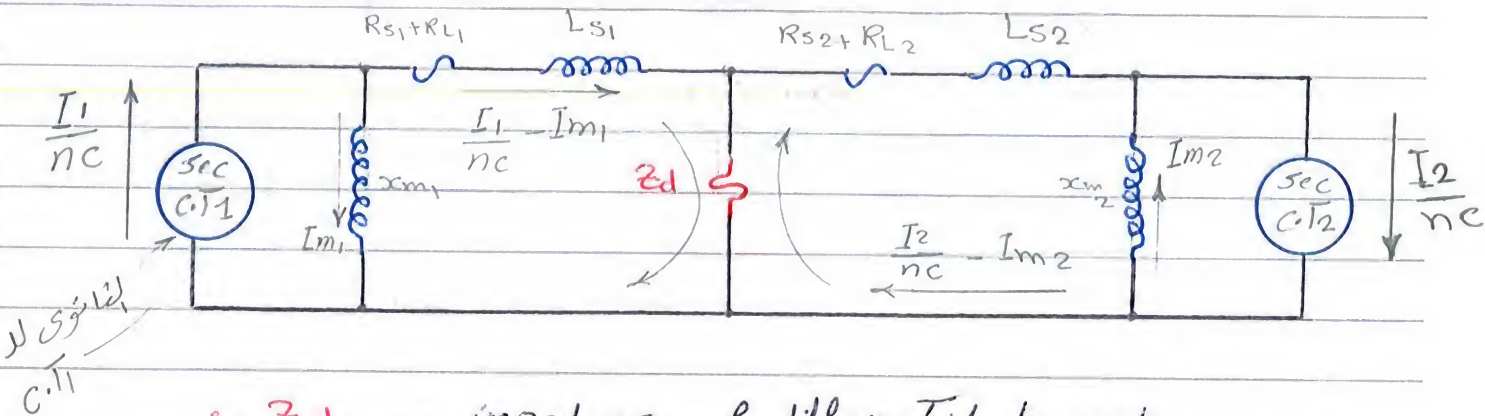 Rs1+RL1
Ls1
Rs2+RL2
Ls2
I1/nc
sec C.T1
xm1
Im1
I1/nc - Im1
Zd
I2/nc - Im2
xm2
Im2
sec C.T2
I2/nc
الثانوي لل
C.T1